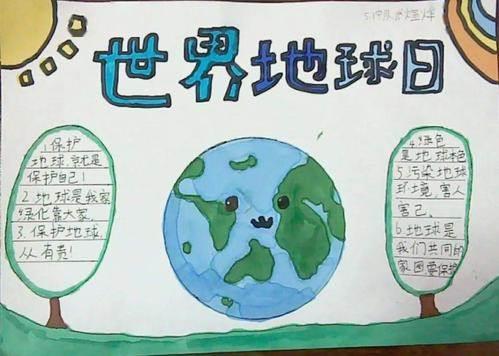 世界地球日
1.保护
地球,就是
保护自己!
2.地球是我家
绿化靠大家.
3.保护地球,
人人有责!
4.绿色
是地球本色
5.污染地球
环境,害人
害己.
6.地球是
我们共同的
家园要保护